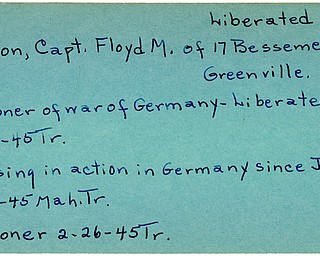 Liberated
on, Capt. Floyd M. of 17 Besseme
Greenville.
oner of war of Germany-Liberate
-45 Tr.
sing in action in Germany since J
-45 Mah. Tr.
oner 2-26-45 Tr.